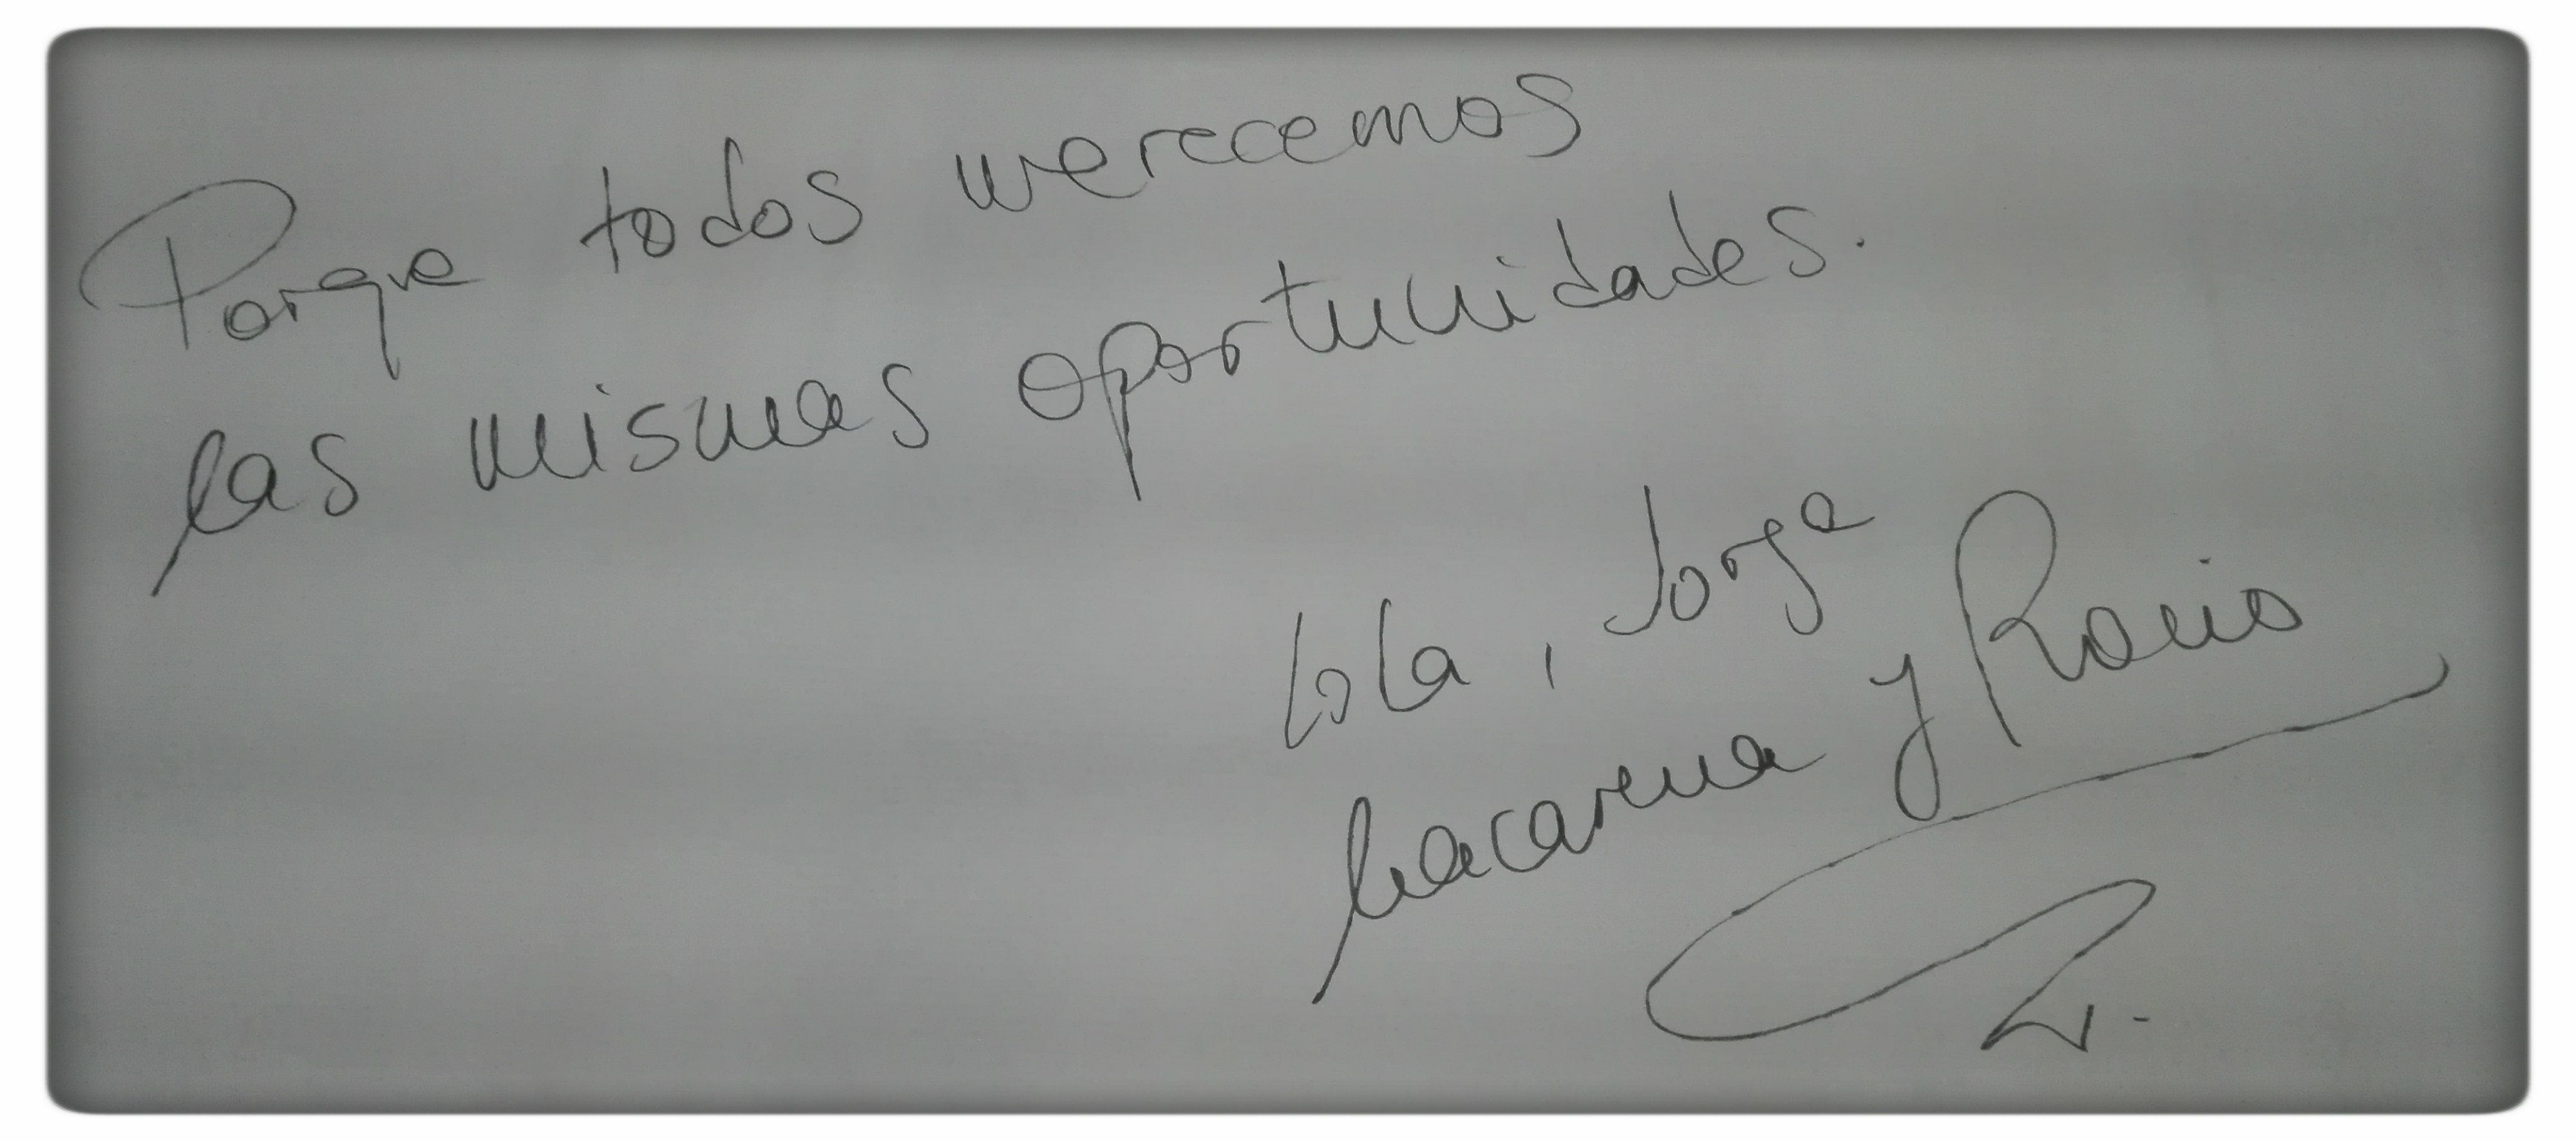 Porque todos merecemos
las mismas oportunidades.
Lola, Jorge
Macarena y Rocio